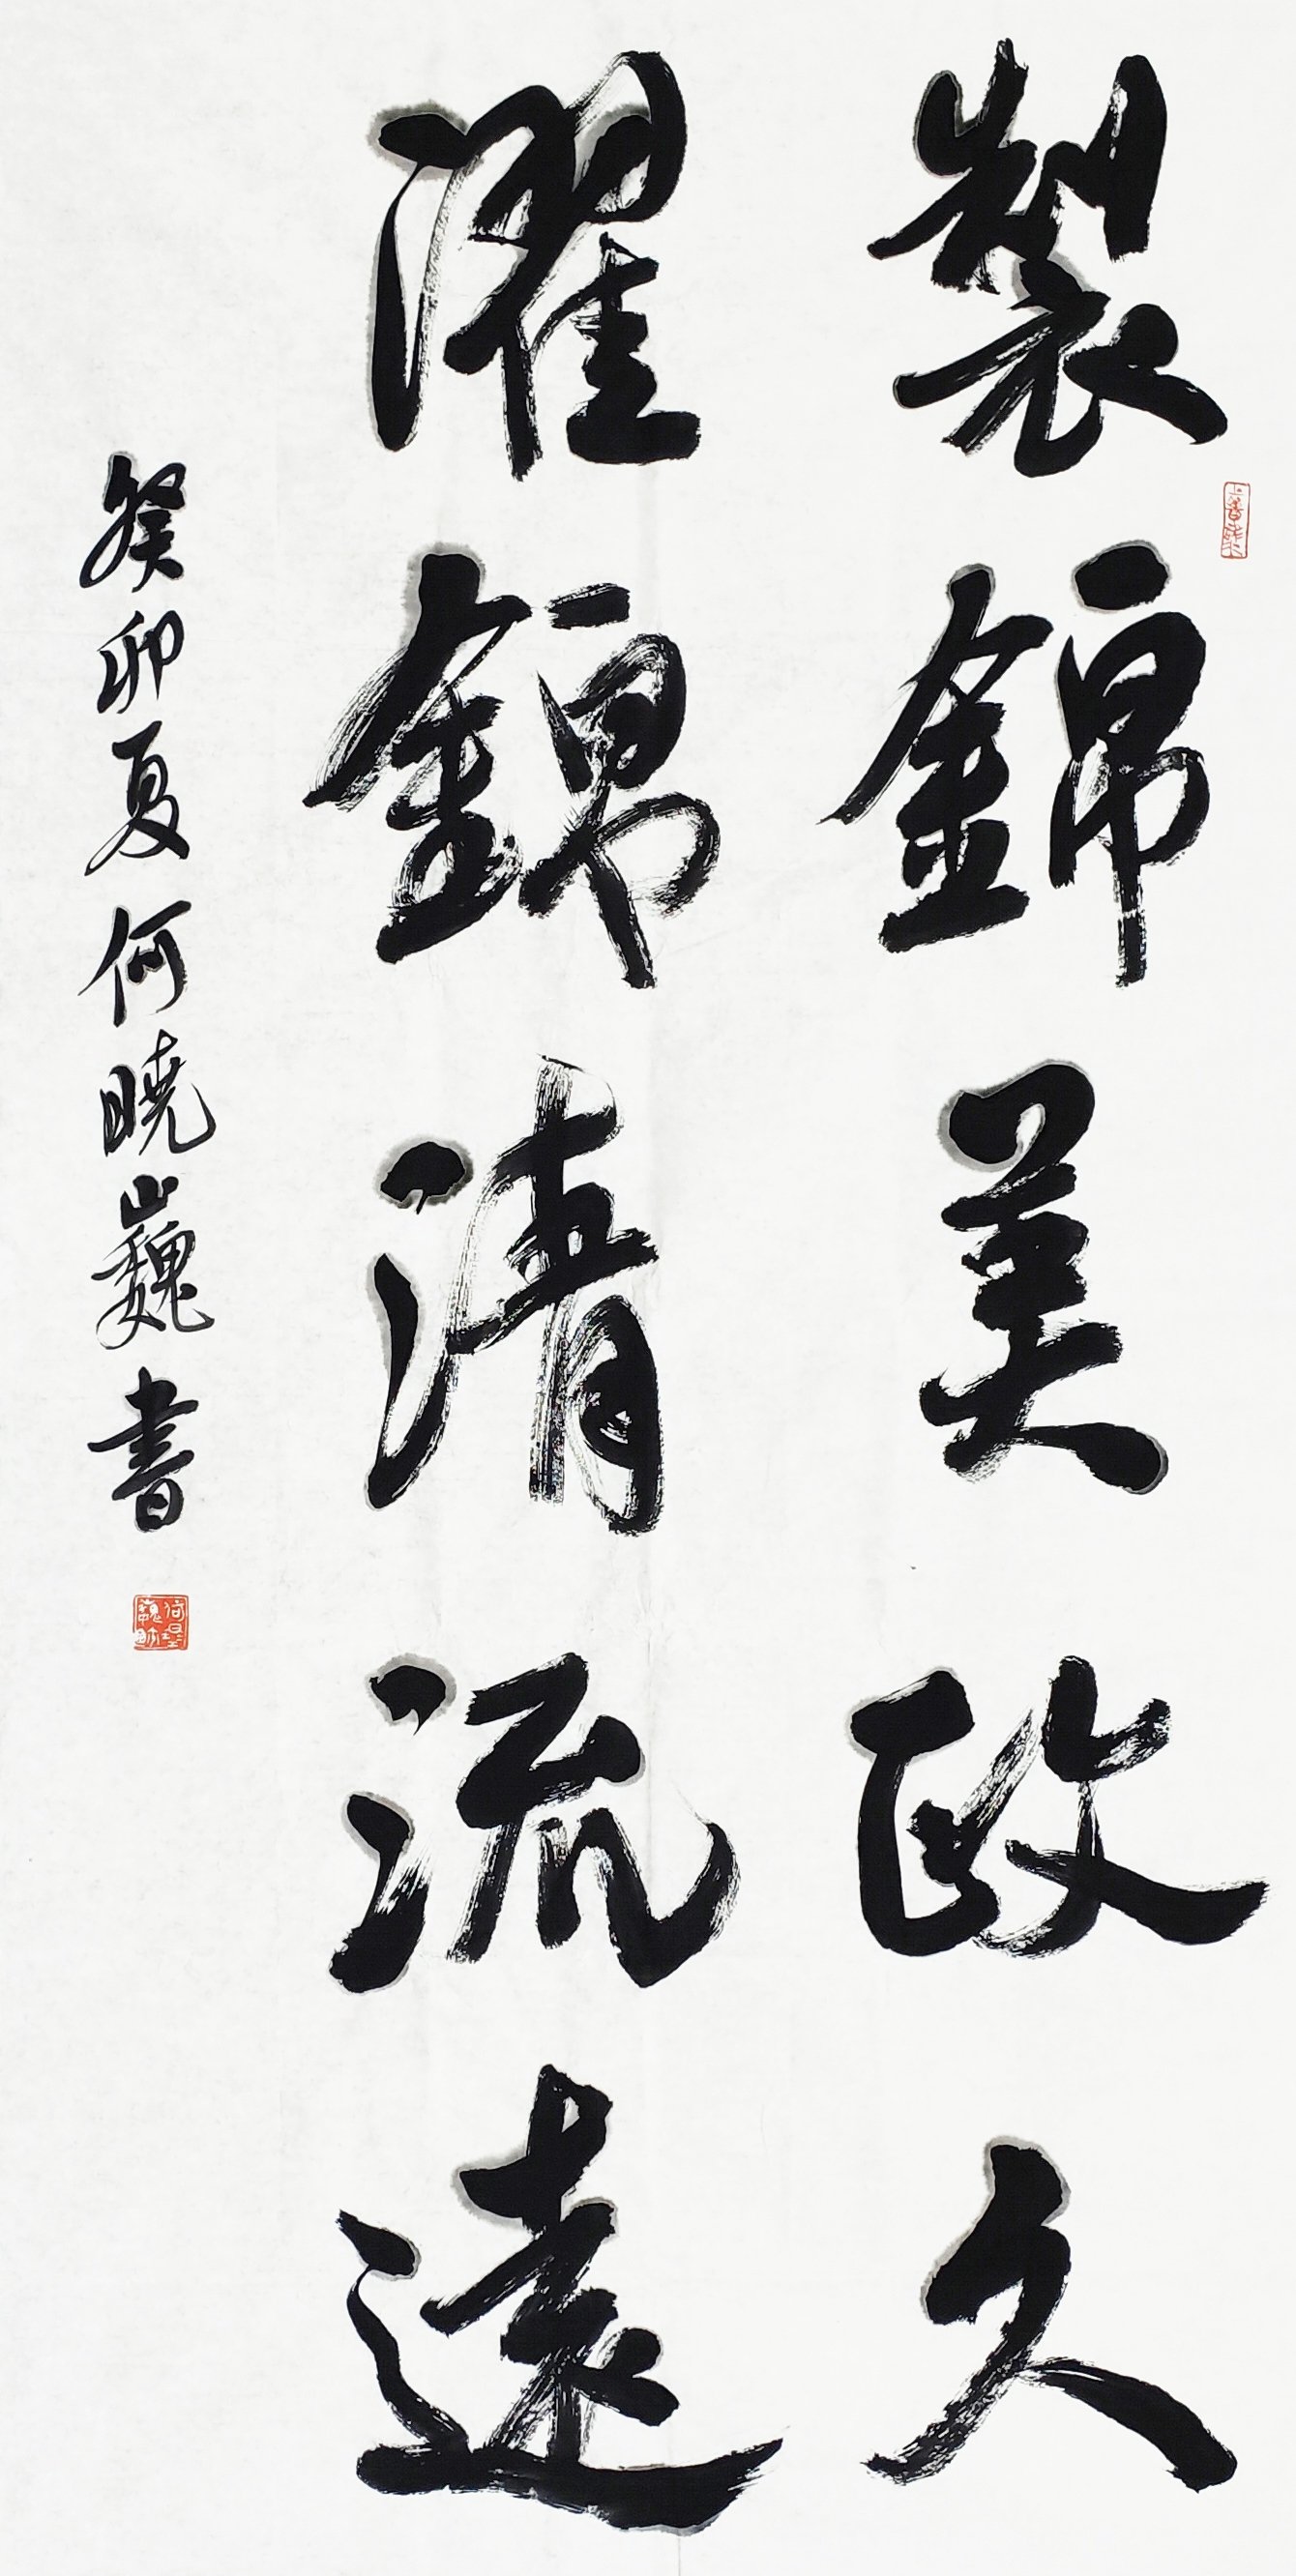 製錦美政久
濯錦清流遠
癸卯夏何曉巍書